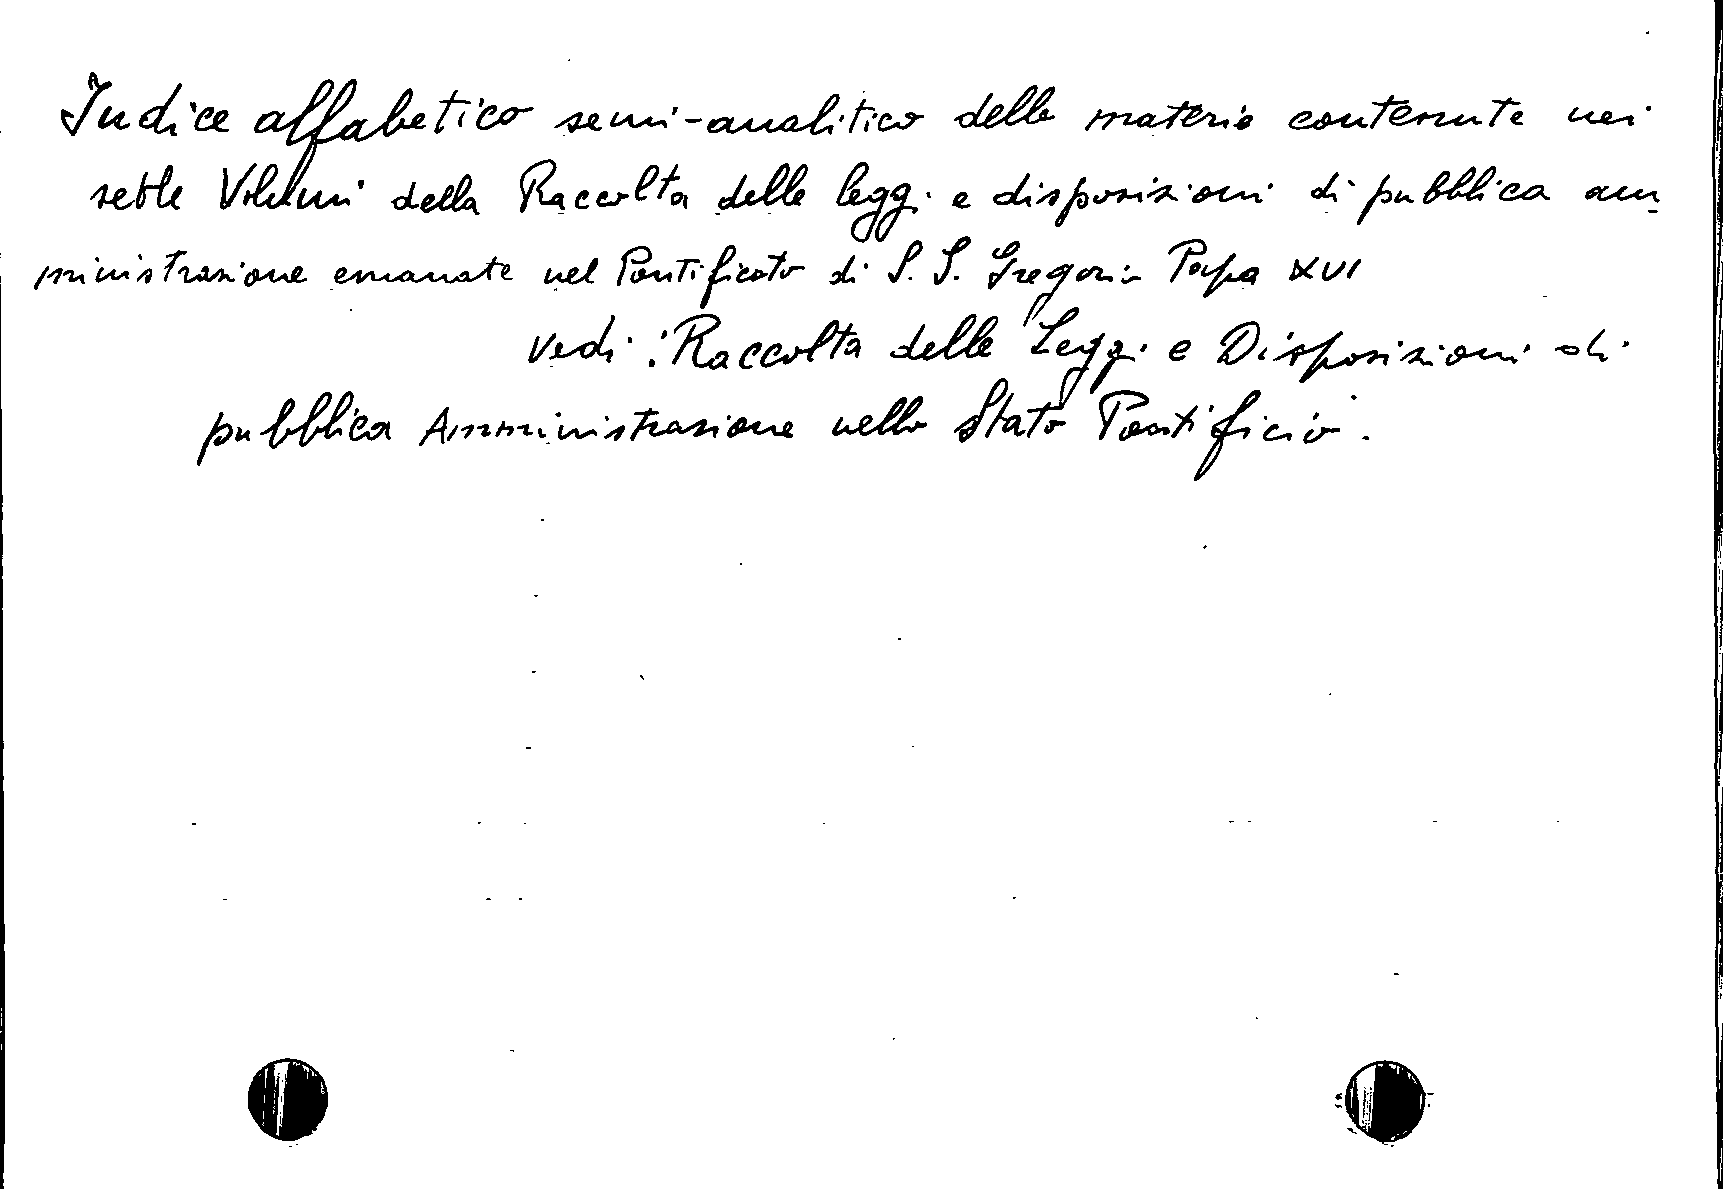 Indice alfabetico semi-analitico delle materie contenute nei
sette Volumi della Raccolta delle leggi e disposizioni di pubblica am
ministrazione emanate nel Pontificato di S. S. Gregorio Papa XVI
vedi: Raccolta delle Leggi e Disposizioni di
pubblica Amministrazione nello Stato Pontificio.